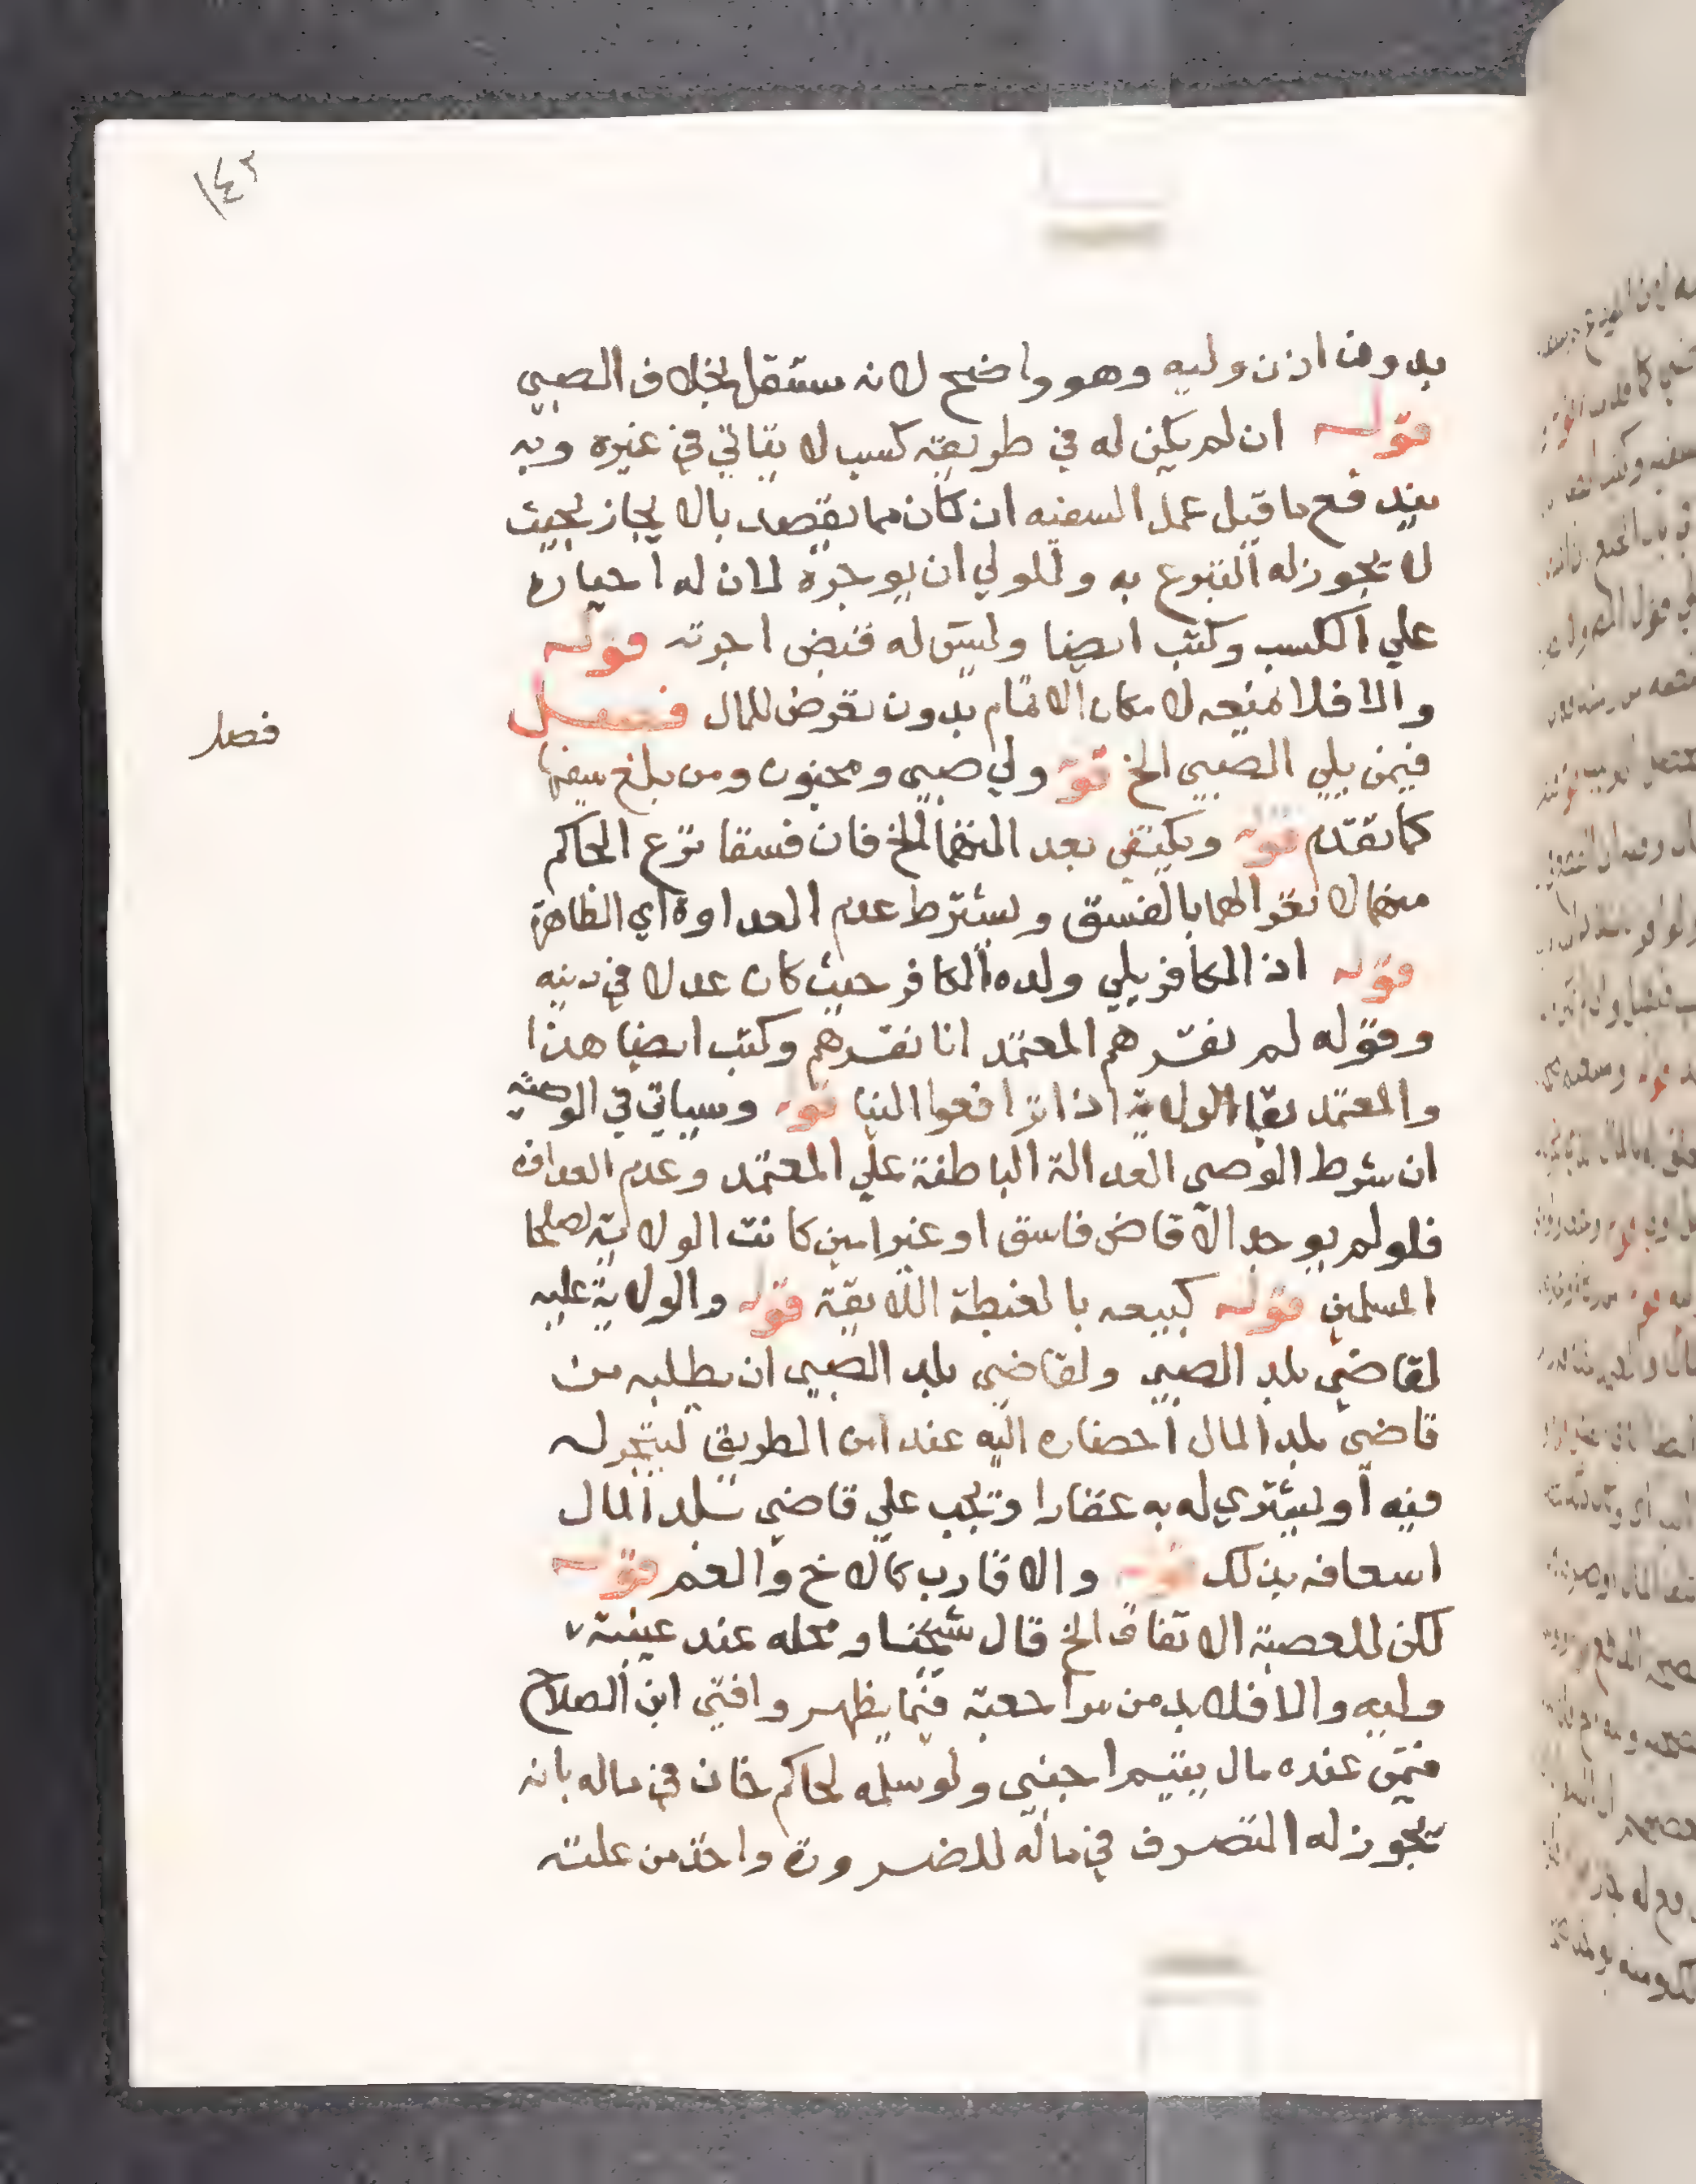 ١٤٢
بدون اذن وليه وهو واضح لانه مستقل بخلاف الصبي
قوله ان لم يكن له في طريقه كسب لا يتاتي في غيره وبه
يندفع ما قيل عمل السفيه ان كان مما يقصد بالايجاز بحيث
لا يجوز له التبرع به وللولي ان يوجره لان له اجباره
علي الكسب وكتب ايضا وليس له قبض اجرته قوله
والا فلا منعه لامكان الاتمام بدون تعرض للمال فصل
فصل
فيمن يلي الصبي الخ قوله ولي صبي ومجنون ومن بلغ سفيها
كما تقدم قوله ويكتفي بعد التهما الخ فان فسقا نزع الحاكم
منهما لانعزالهما بالفسق ويشترط عدم العداوة اي الظاهرة
قوله اذ الكافر يلي ولده الكافر حيث كان عدلا في دينه
وقوله لم نقرهم المعتمد انا نقرهم وكتب ايضا هذا
والمعتمد بقا الولاية اذا ترافعوا الينا قوله وسياتي في الوصية
ان شرط الوصي العدالة الباطنة علي المعتمد وعدم العداوة
فلو لم يوجد الا قاض فاسق او غير امين كانت الولاية لصلحا
المسلمين قوله كبيعه بالغبطة اللايقة قوله والولاية عليه
لقاضي بلد الصبي ولقاضي بلد الصبي ان يطلبه من
قاضي بلد المال احضاره اليه عند امن الطريق ليتجر له
فيه او ليشتري له به عقارا ويجب علي قاضي بلد المال
اسعافه بذلك قوله والاقارب كالاخ والعم قوله
لكن للعصبة الانفاق الخ قال شيخنا ومحله عند غيبة
وليه والا فلا بد من مراجعته فيما يظهر وافتي ابن الصلاح
فيمن عنده مال يتيم اجنبي ولو سلمه لحاكم خان في ماله بانه
يجوز له التصرف في ماله للضرورة واخذ من علته